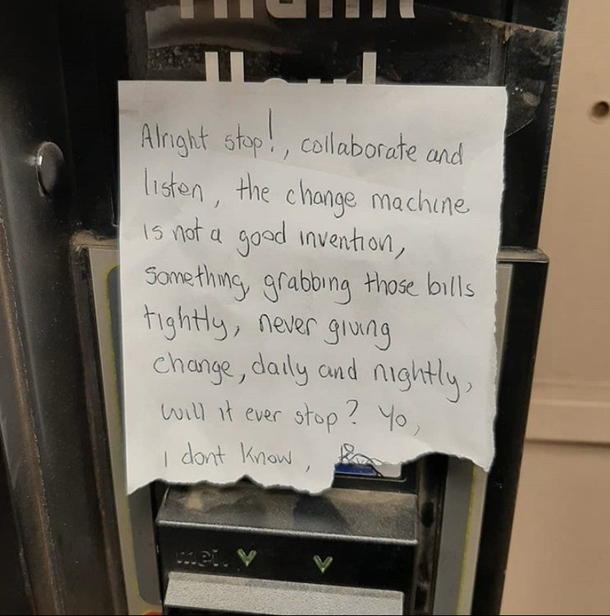 Alright stop!, collaborate and
listen, the change machine
is not a good invention,
Something, grabbing those bills
tightly, never giving
change, daily and nightly,
will it ever stop? Yo,
I dont know,